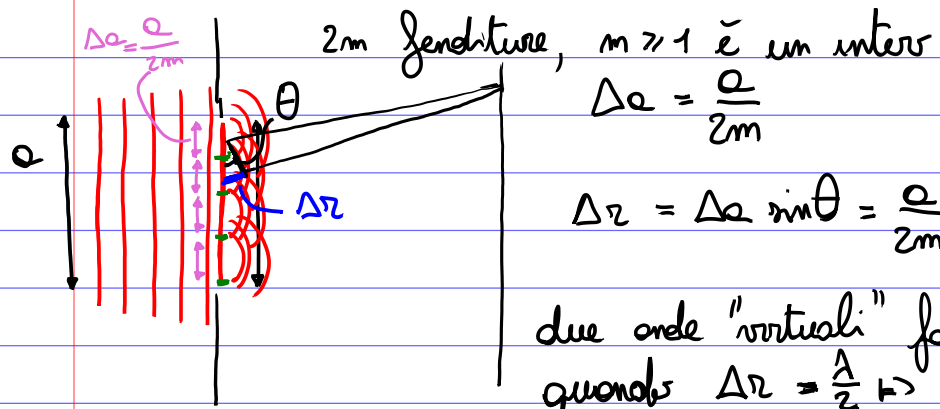 Δa = a/2m
2m fenditure, m ≫ 1 è un interv
Δa = a/2m
θ
a
Δr
Δr = Δa sinθ = a/2m
due onde "virtuali" fa
quando Δr = λ/2 ↦